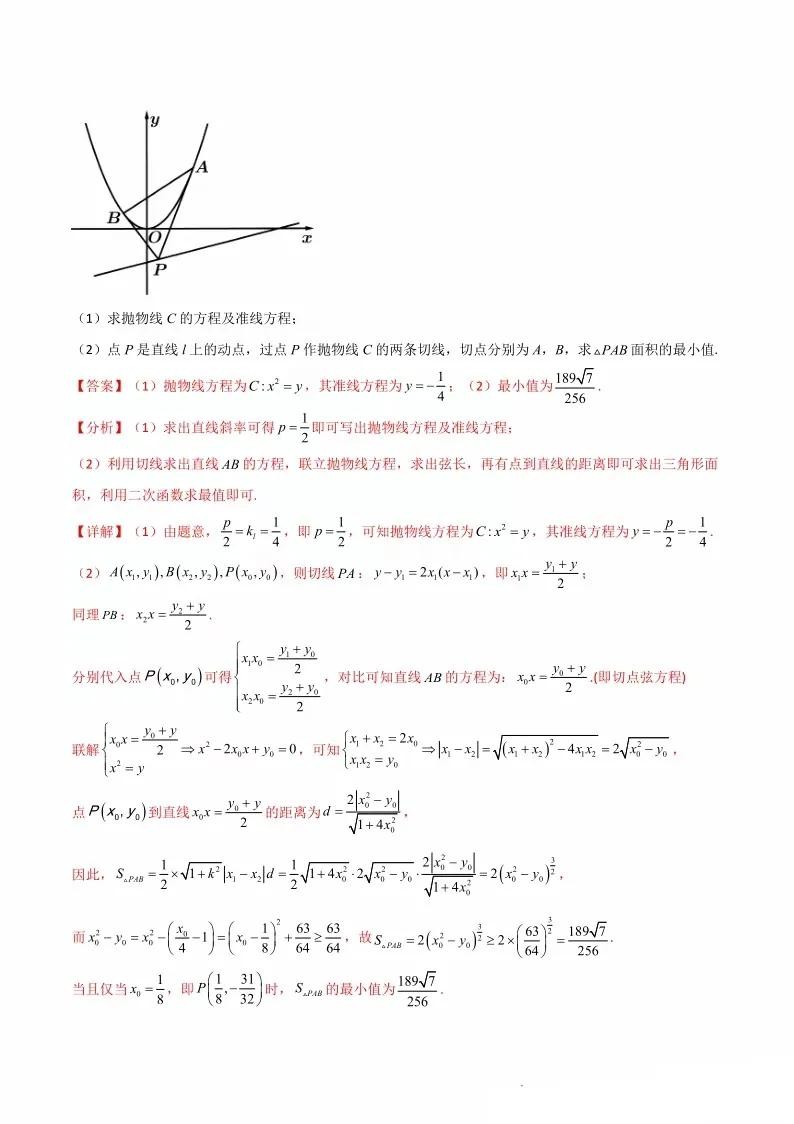 y
A
B
O
x
P
（1）求抛物线 C 的方程及准线方程；
（2）点 P 是直线 l 上的动点，过点 P 作抛物线 C 的两条切线，切点分别为 A，B，求△PAB 面积的最小值.
【答案】（1）抛物线方程为 C : x² = y，其准线方程为 y = −1/4；（2）最小值为 189√7/256.
【分析】（1）求出直线斜率可得 p = 1/2 即可写出抛物线方程及准线方程；
（2）利用切线求出直线 AB 的方程，联立抛物线方程，求出弦长，再有点到直线的距离即可求出三角形面
积，利用二次函数求最值即可.
【详解】（1）由题意，p/2 = k_l = 1/4，即 p = 1/2，可知抛物线方程为 C : x² = y，其准线方程为 y = −p/2 = −1/4.
（2）A(x₁, y₁), B(x₂, y₂), P(x₀, y₀)，则切线 PA：y − y₁ = 2x₁(x − x₁)，即 x₁x = (y₁ + y)/2；
同理 PB：x₂x = (y₂ + y)/2.
分别代入点 P(x₀, y₀) 可得 { x₁x₀ = (y₁ + y₀)/2 ; x₂x₀ = (y₂ + y₀)/2 ，对比可知直线 AB 的方程为：x₀x = (y₀ + y)/2 .(即切点弦方程)
联解 { x₀x = (y₀ + y)/2 ; x² = y ⇒ x² − 2x₀x + y₀ = 0，可知 { x₁ + x₂ = 2x₀ ; x₁x₂ = y₀ ⇒ |x₁ − x₂| = √((x₁ + x₂)² − 4x₁x₂) = 2√(x₀² − y₀)，
点 P(x₀, y₀) 到直线 x₀x = (y₀ + y)/2 的距离为 d = 2|x₀² − y₀|/√(1 + 4x₀²)，
因此，S△PAB = 1/2 × √(1 + k²)|x₁ − x₂|d = 1/2 √(1 + 4x₀²) · 2√(x₀² − y₀) · 2|x₀² − y₀|/√(1 + 4x₀²) = 2(x₀² − y₀)^(3/2)，
而 x₀² − y₀ = x₀² − (x₀/4 − 1) = (x₀ − 1/8)² + 63/64 ≥ 63/64，故 S△PAB = 2(x₀² − y₀)^(3/2) ≥ 2 × (63/64)^(3/2) = 189√7/256.
当且仅当 x₀ = 1/8，即 P(1/8, −31/32) 时，S△PAB 的最小值为 189√7/256.